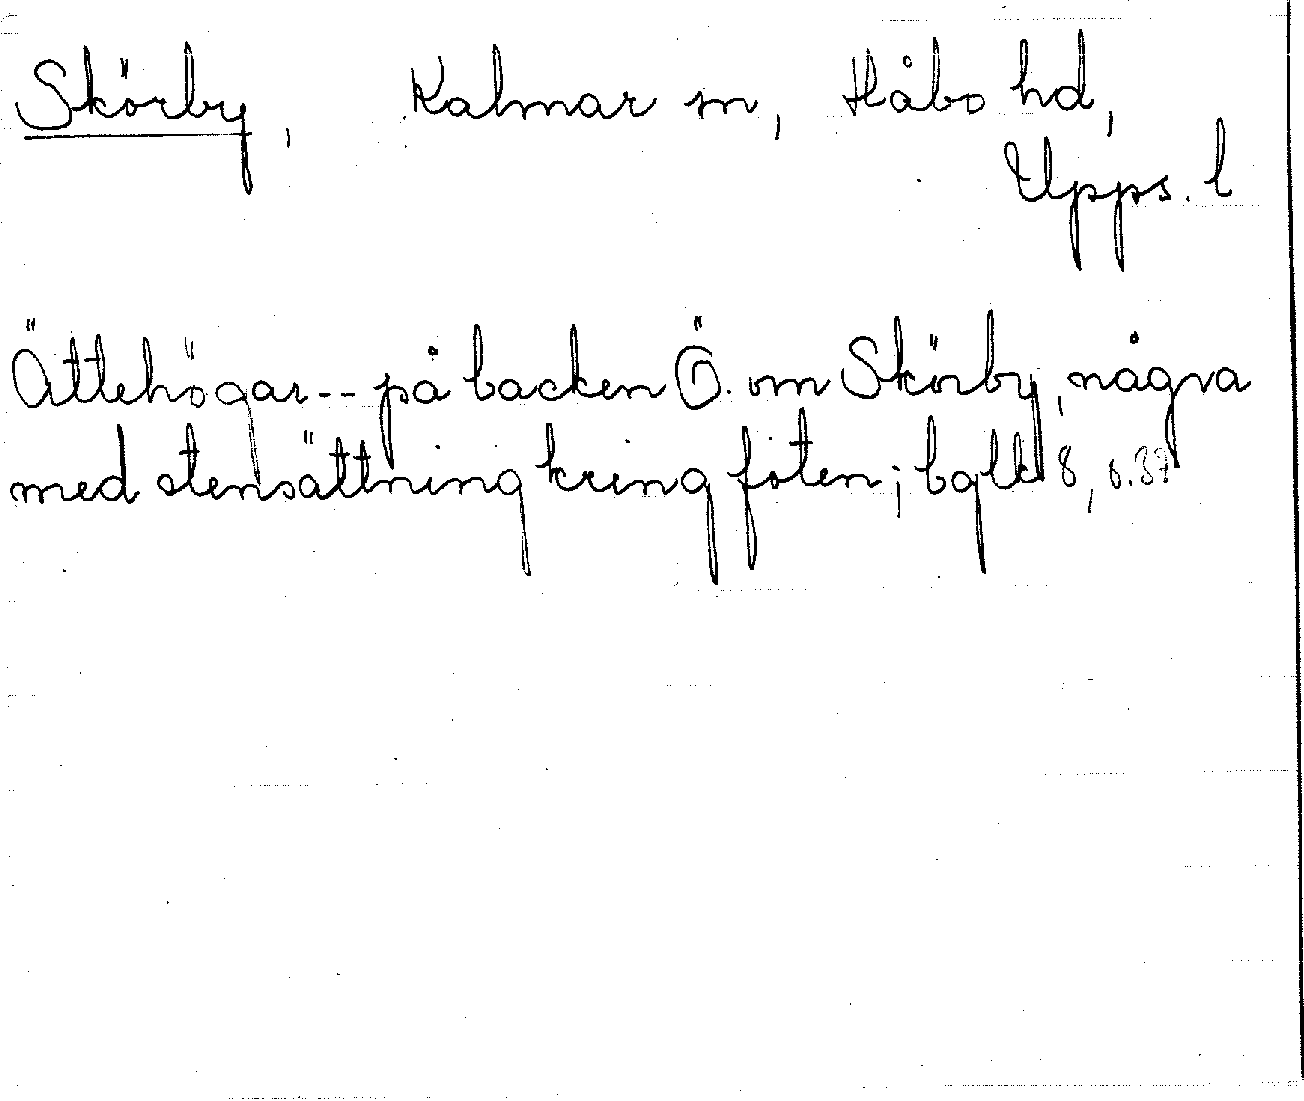 Skörby, Kalmar sn, Håbo hd,
Upps. l
Ättehögar -- på backen Ö. om Skörby, några
med stensättning kring foten; bglk 8, s. 37